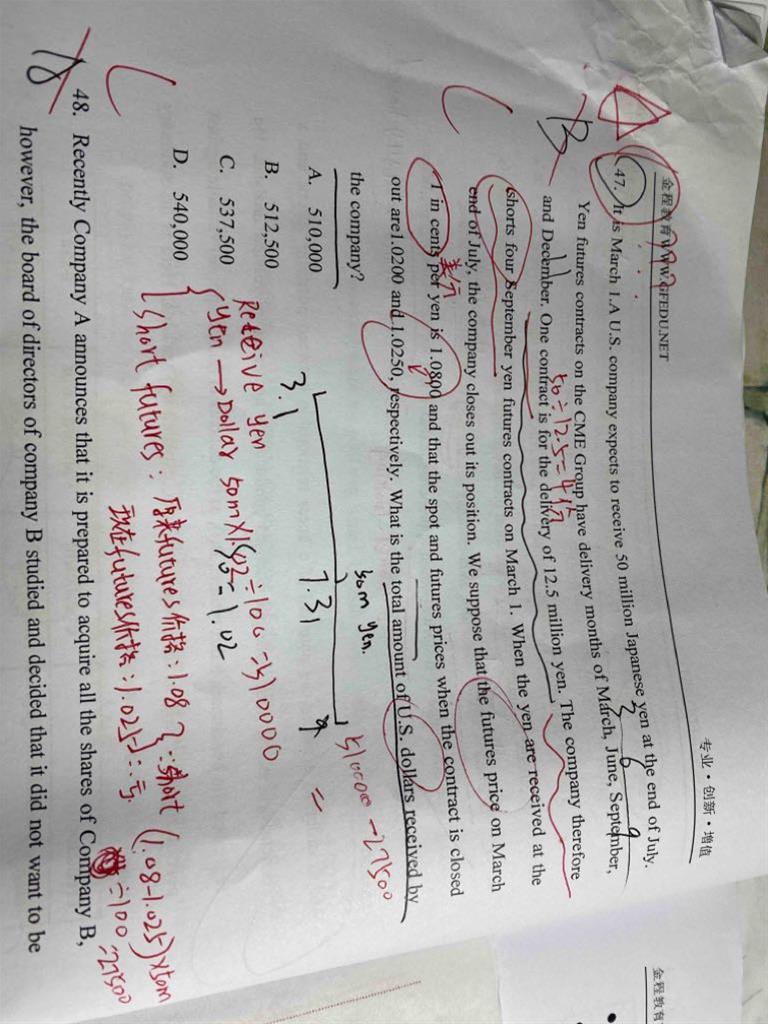 金程教育WWW.GFEDU.NET
专业·创新·增值
47. It is March 1.A U.S. company expects to receive 50 million Japanese yen at the end of July.
Yen futures contracts on the CME Group have delivery months of March, June, September,
3 6 9
and December. One contract is for the delivery of 12.5 million yen. The company therefore
50÷12.5=4份
shorts four September yen futures contracts on March 1. When the yen are received at the
end of July, the company closes out its position. We suppose that the futures price on March
1 in cents per yen is 1.0800 and that the spot and futures prices when the contract is closed
美分
out are1.0200 and 1.0250, respectively. What is the total amount of U.S. dollars received by
the company?
50m yen.
510000-27500
=
A. 510,000
3.1
7.31
9
B. 512,500
C. 537,500
D. 540,000
Receive yen
yen → Dollar 50m×1.02÷100=510000
1.02
short futures: 原来futures价格: 1.08
现在futures价格: 1.025
∴short (1.08-1.025)×50m
÷100=27500
B
C
48. Recently Company A announces that it is prepared to acquire all the shares of Company B,
however, the board of directors of company B studied and decided that it did not want to be
金程教育